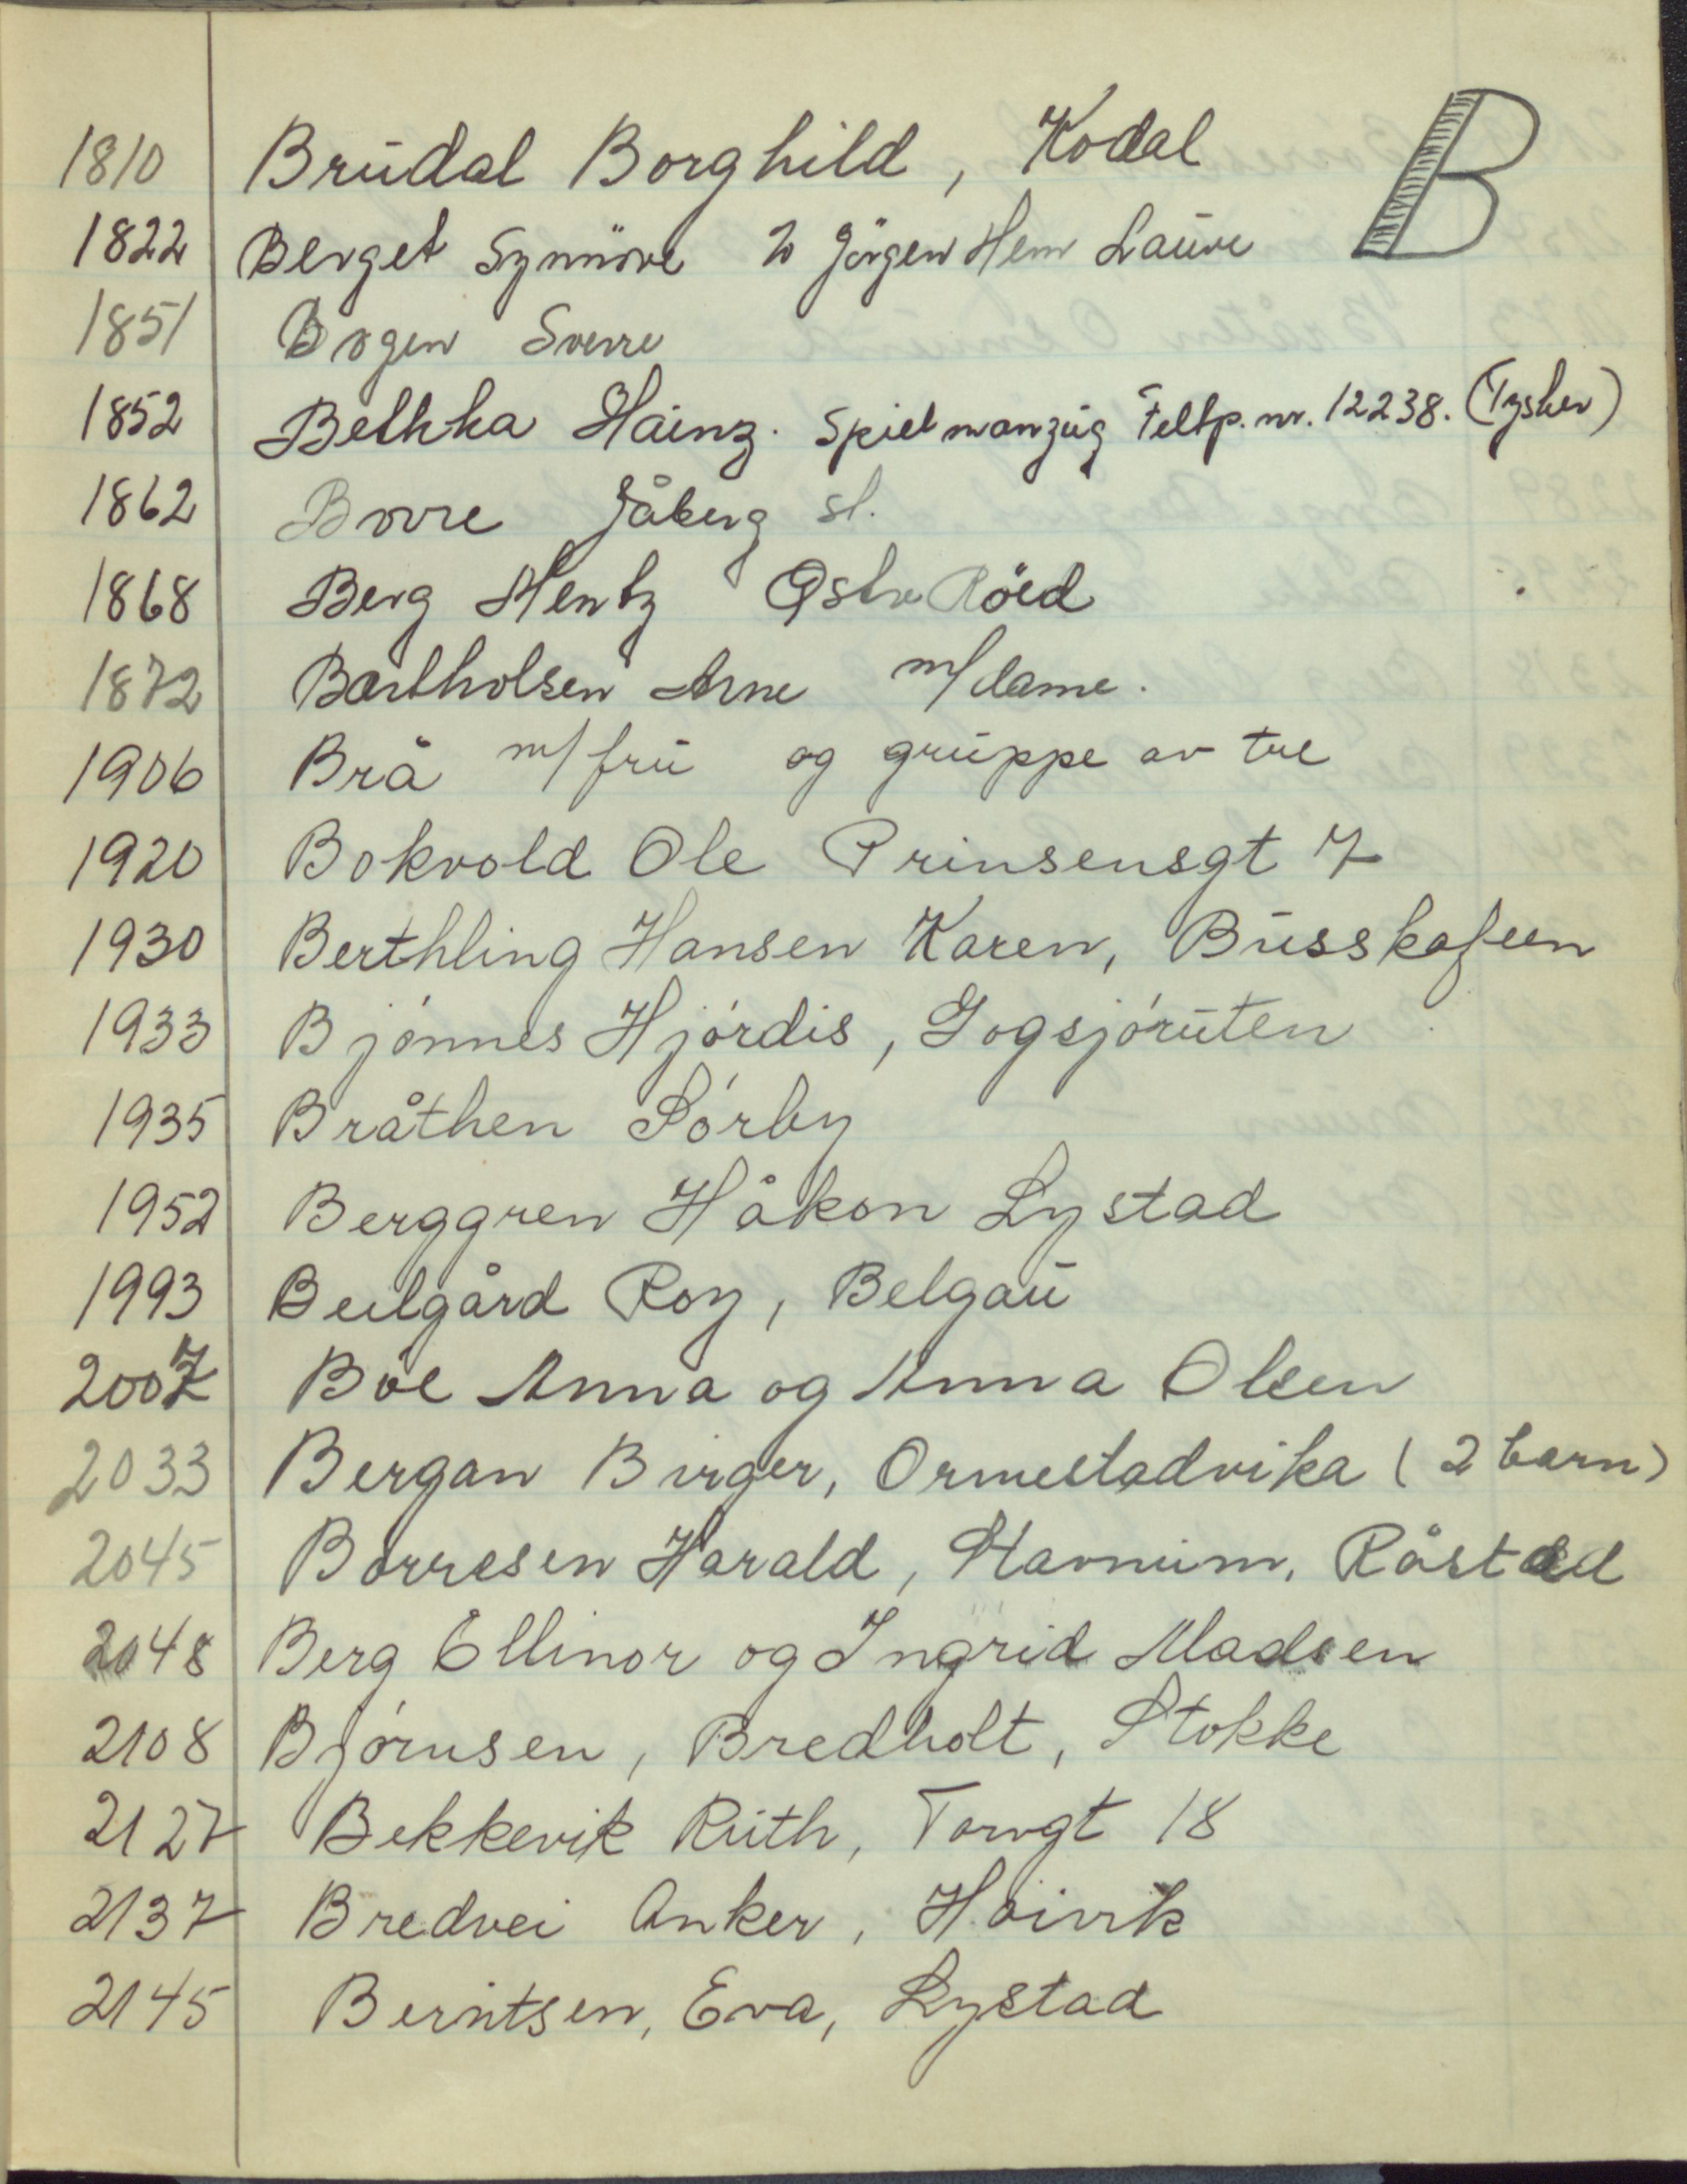 B
1810 Brudal Borghild, Kodal
1822 Berget Synnöve Jörgen Hem Lauve
1851 Bogen Sverre
1852 Bethka Hainz. Spielmanzug Feltp. nr. 12238. (Tysker)
1862 Bovre Jåberg st.
1868 Berg Hentz Østr Röed
1872 Bartholsen Arne m/dame.
1906 Brå m/fru og gruppe av tre
1920 Bokvold Ole Prinsensgt 7
1930 Berthling Hansen Karen, Busskafeen
1933 Bjónnes Hjórdis, Gogsjóruten
1935 Bråthen Sórby
1952 Berggren Håkon Lystad
1993 Beilgård Roy, Belgau
2007 Bóe Anna og Anna Olsen
2033 Bergan Birger, Ormestadvika (2 barn)
2045 Borresen Harald, Stavnum, Råstad
2048 Berg Ellinor og Ingrid Madsen
2108 Bjórnsen, Bredholt, Stokke
2127 Bekkevik Ruth, Torvgt 18
2137 Bredvei Anker, Hoivik
2145 Berntsen, Eva, Lystad